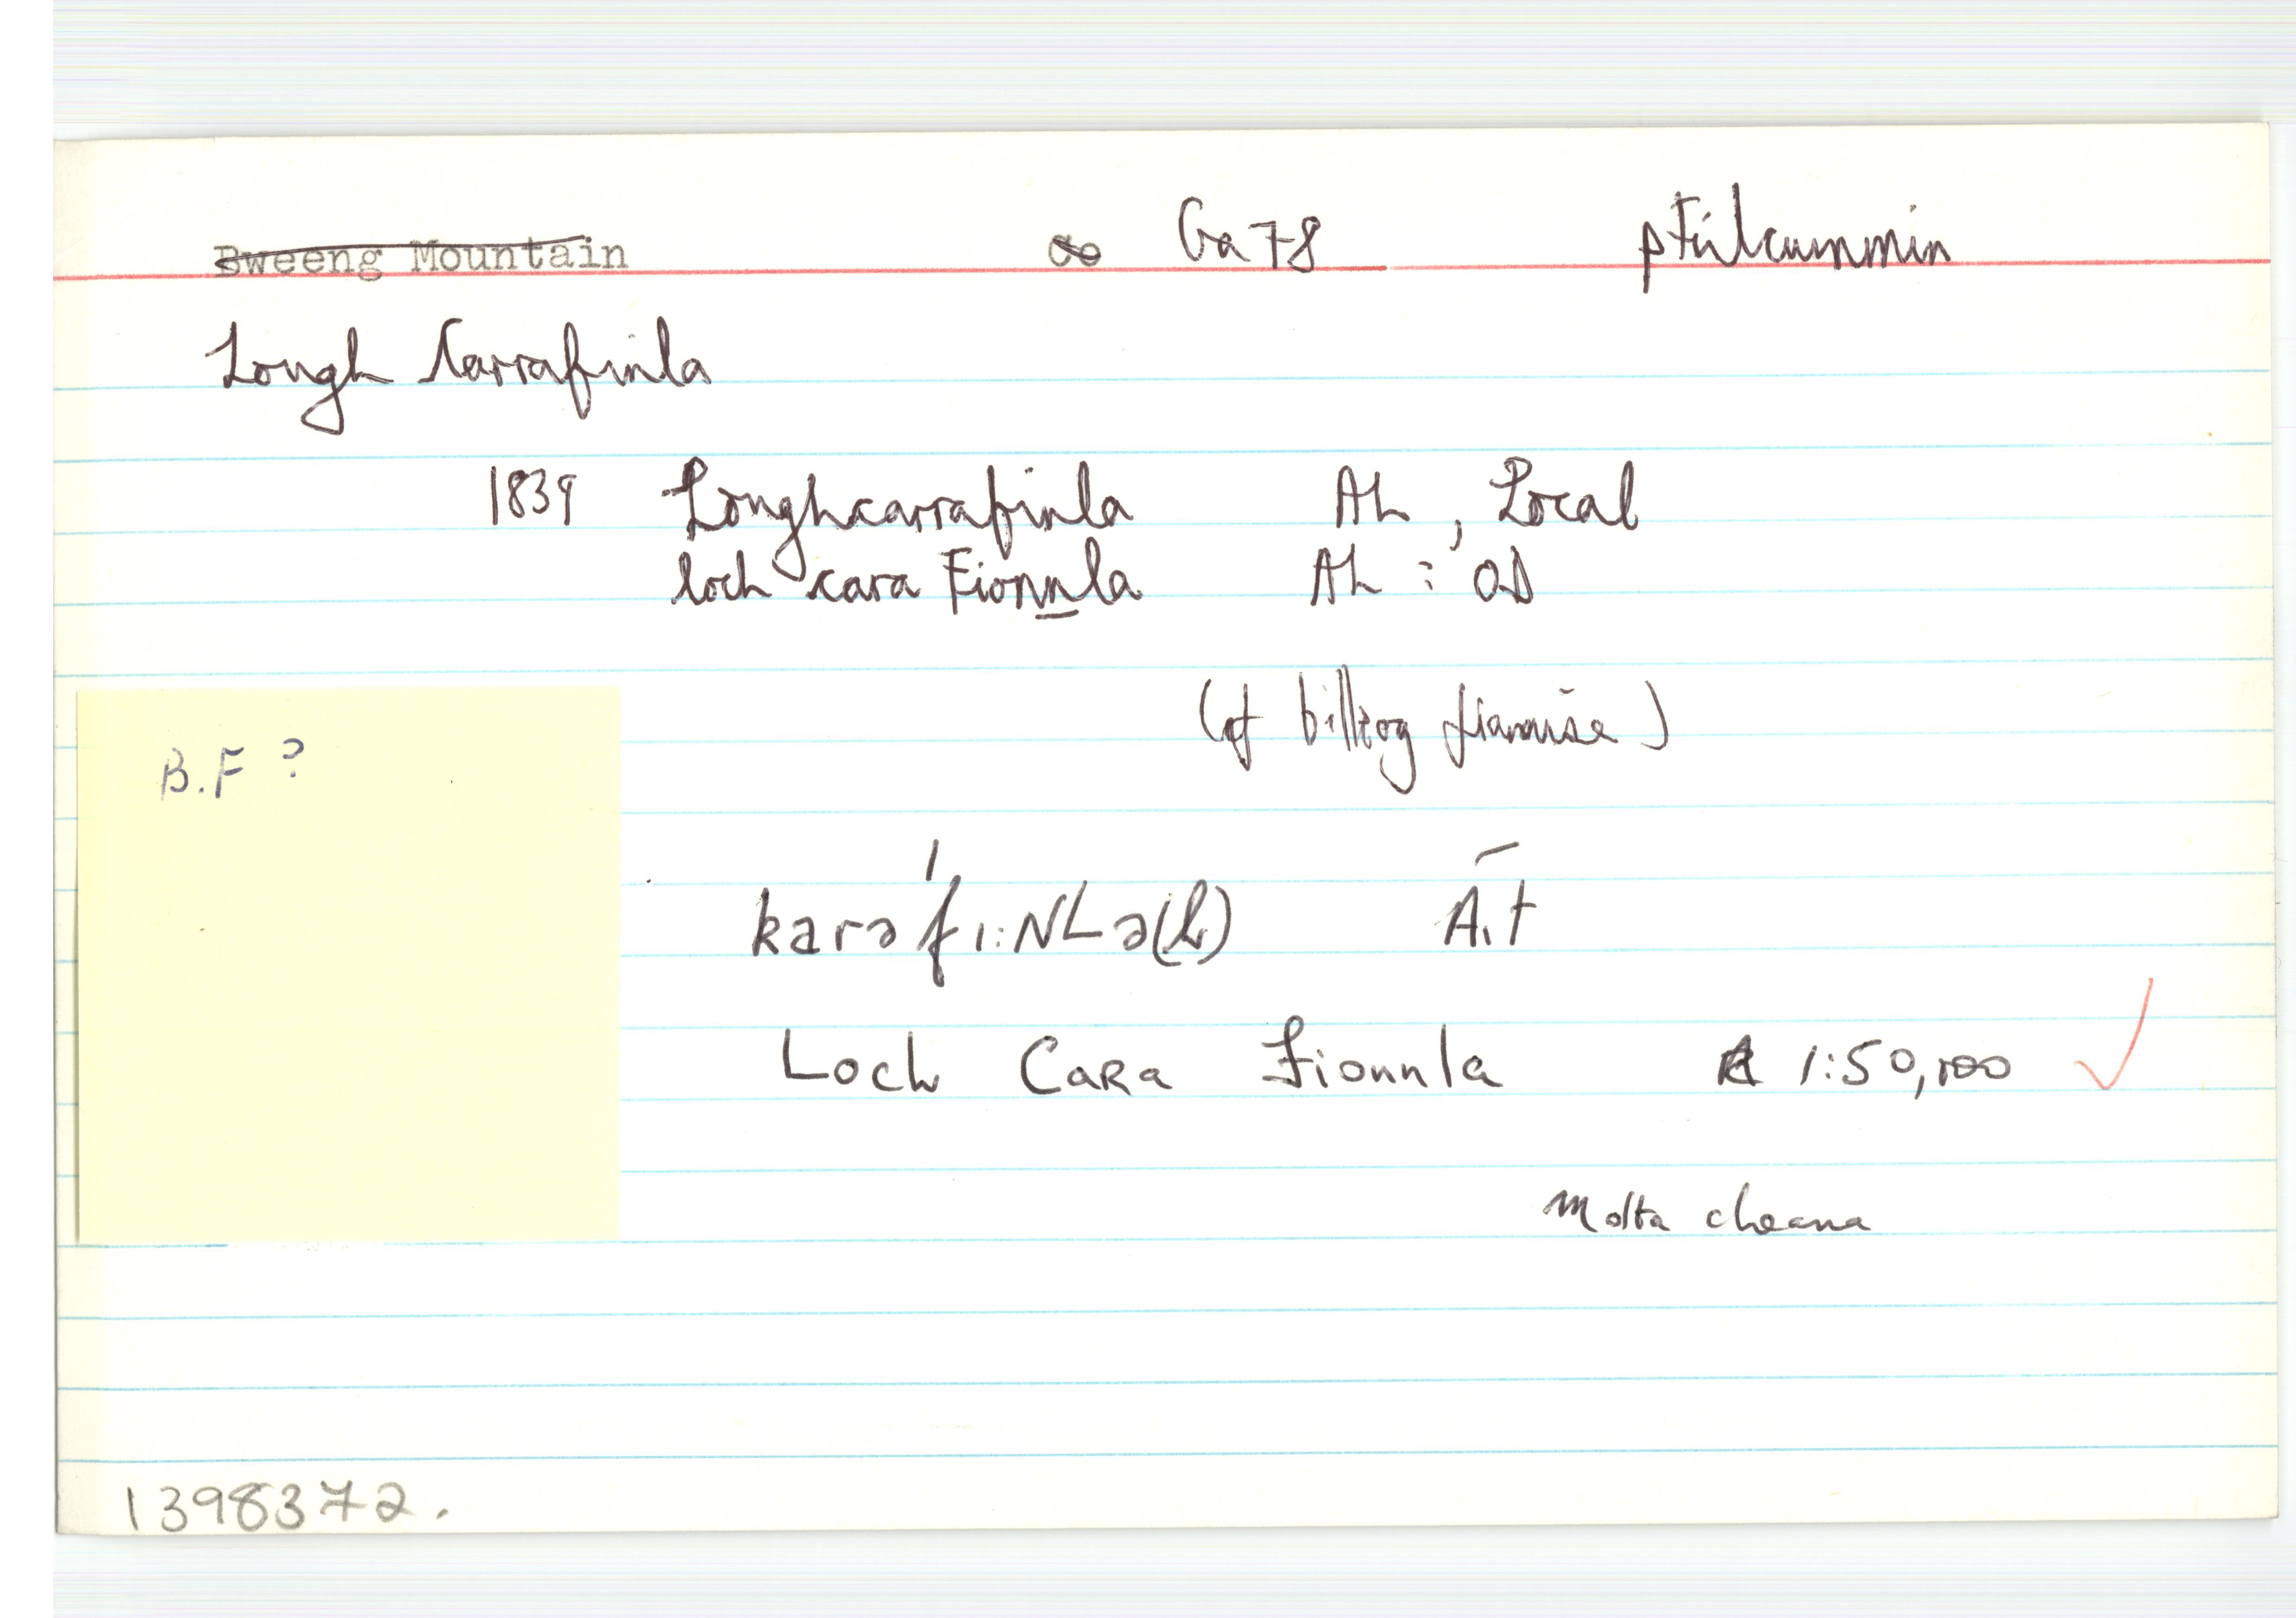 Bweeng Mountain Co Ga 78 pKilcummin
Lough Carrafinla
1839 Loughcarrafinla AL, Local
loch cara Fionnla AL : OD
(cf billeog fianaise)
B.F ?
karə'f1:NLə(h) Áit
Loch Cara Fionnla 1:50,000 ✓
Molta cheana
1398372.